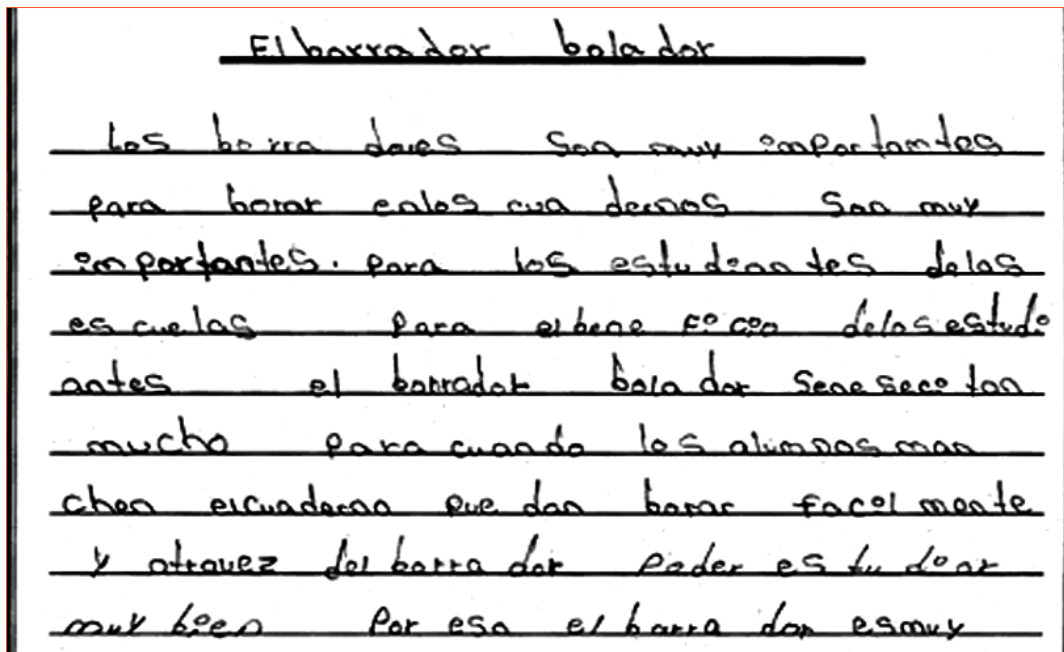 El borra dor bola dor
Los borra dores Son muy importantes
para borar enlos cua dernos Son muy
importantes. para los estudian tes delas
es cuelas para elbene ficio delos estudi
antes el borrador bola dor Sene seci tan
mucho para cuando los alumnos man
chen elcuaderno pue dan borar facil mente
y atravez del borra dor poder es tu diar
muy bien Por eso el barra dor esmuy